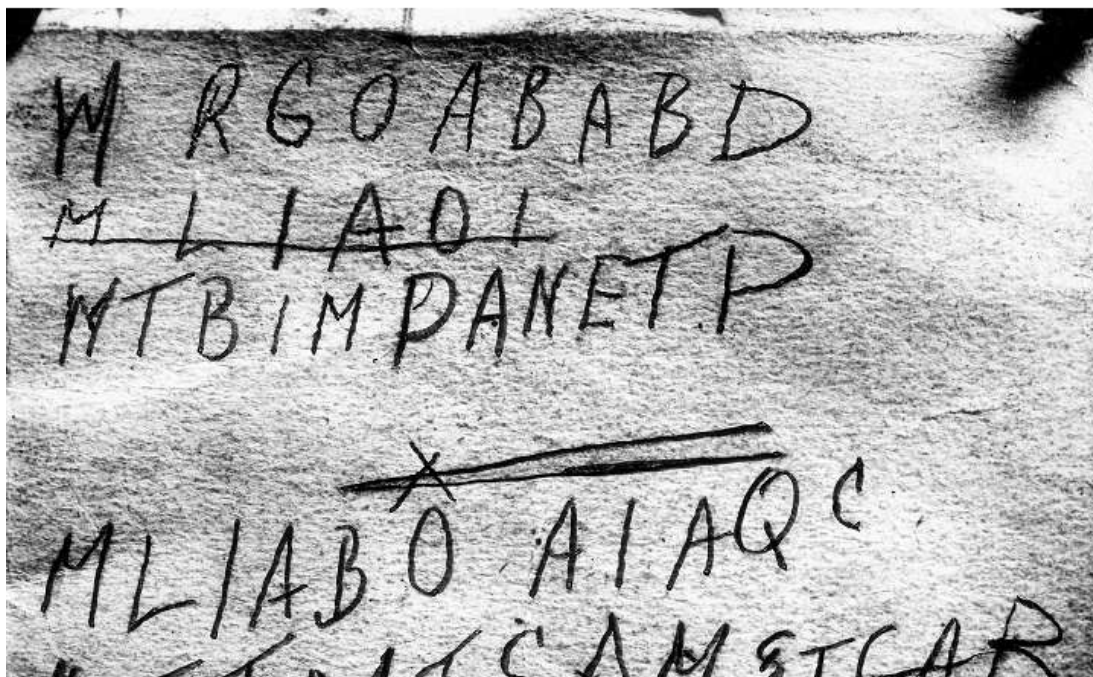 W RGOABABD
M L I A O I
WTBIMPANETP
X
MLIABO AIAQC